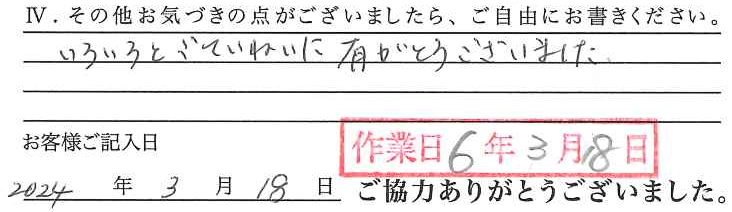 Ⅳ．その他お気づきの点がございましたら、ご自由にお書きください。
いろいろとごていねいに 有がとうございました
お客様ご記入日
作業日6年3月18日
2024 年 3 月 18 日 ご協力ありがとうございました。